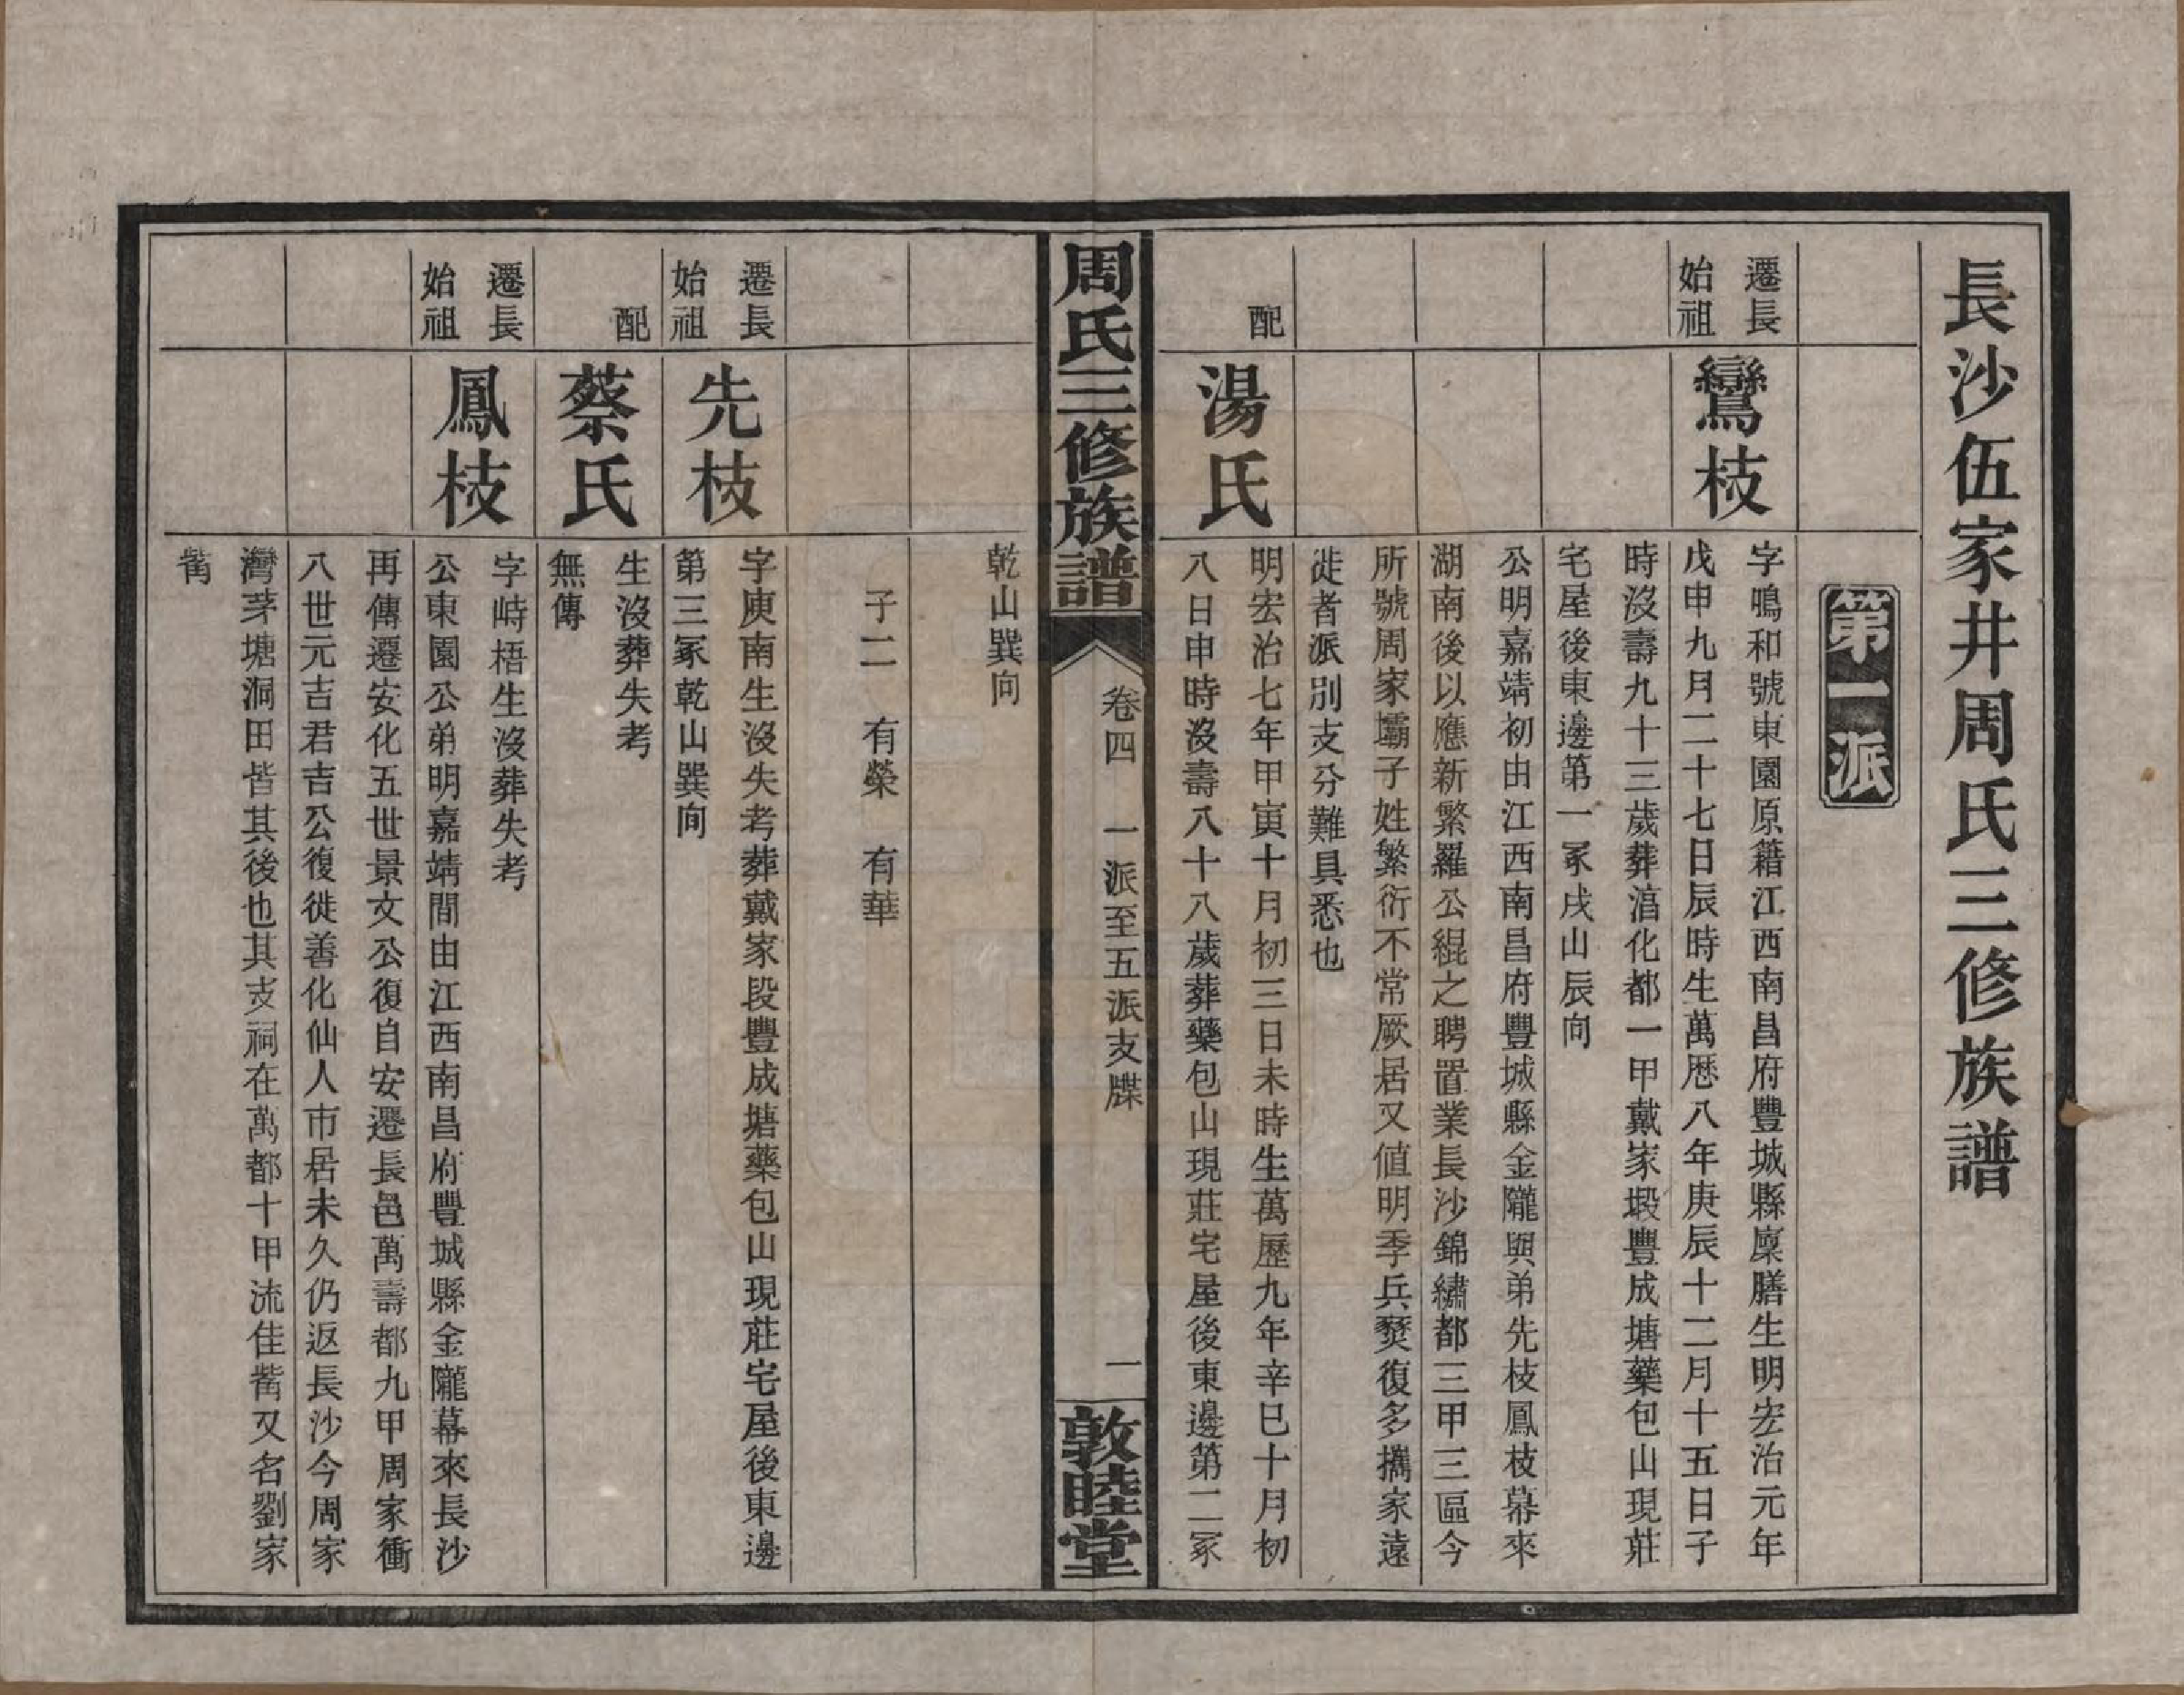 長沙伍家井周氏三修族譜
第一派
遷長
始祖
鸞枝
字鳴和號東園原籍江西南昌府豐城縣廩膳生明宏治元年
戊申九月二十七日辰時生萬歷八年庚辰十二月十五日子
時沒壽九十三歲葬淸化都一甲戴家塅豐成塘藥包山現莊
宅屋後東邊第一冢戌山辰向
公明嘉靖初由江西南昌府豐城縣金隴與弟先枝鳳枝幕來
湖南後以應新繁羅公緄之聘置業長沙錦繡都三甲三區今
所號周家壩子姓繁衍不常厥居又値明季兵燹復多攜家遠
徙者派別支分難具悉也
配
湯氏
明宏治七年甲寅十月初三日未時生萬歷九年辛巳十月初
八日申時沒壽八十八歲葬藥包山現莊宅屋後東邊第二冢
周氏三修族譜
卷四 一派至五派支牒
一
敦睦堂
乾山巽向
子二 有榮 有華
遷長
始祖
先枝
字庾南生沒失考葬戴家段豐成塘藥包山現莊宅屋後東邊
第三冢乾山巽向
配
蔡氏
生沒葬失考
無傳
遷長
始祖
鳳枝
字峙梧生沒葬失考
公東園公弟明嘉靖間由江西南昌府豐城縣金隴幕來長沙
再傳遷安化五世景文公復自安遷長邑萬壽都九甲周家衝
八世元吉君吉公復徙善化仙人市居未久仍返長沙今周家
灣芽塘洞田皆其後也其支祠在萬都十甲流佳觜又名劉家
觜